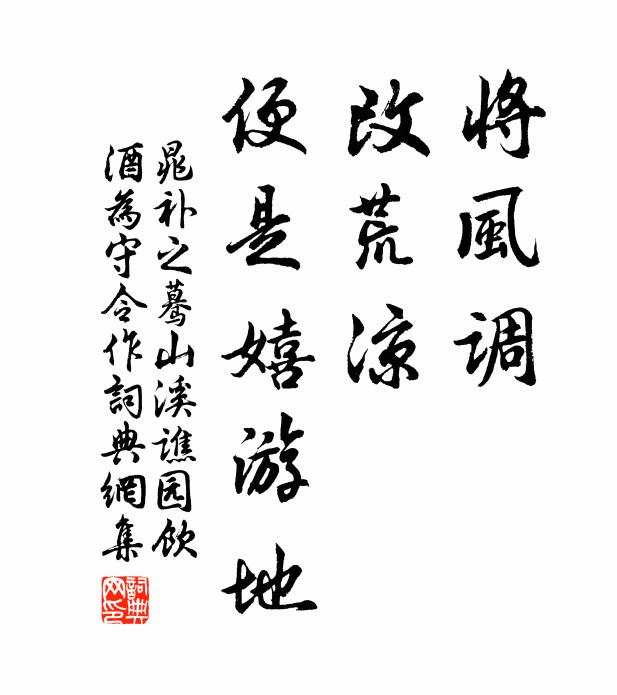 將風調
改荒涼
便是嬉游地
晁补之驀山溪譙园飲
酒為守令作詞典網集
詞典网印